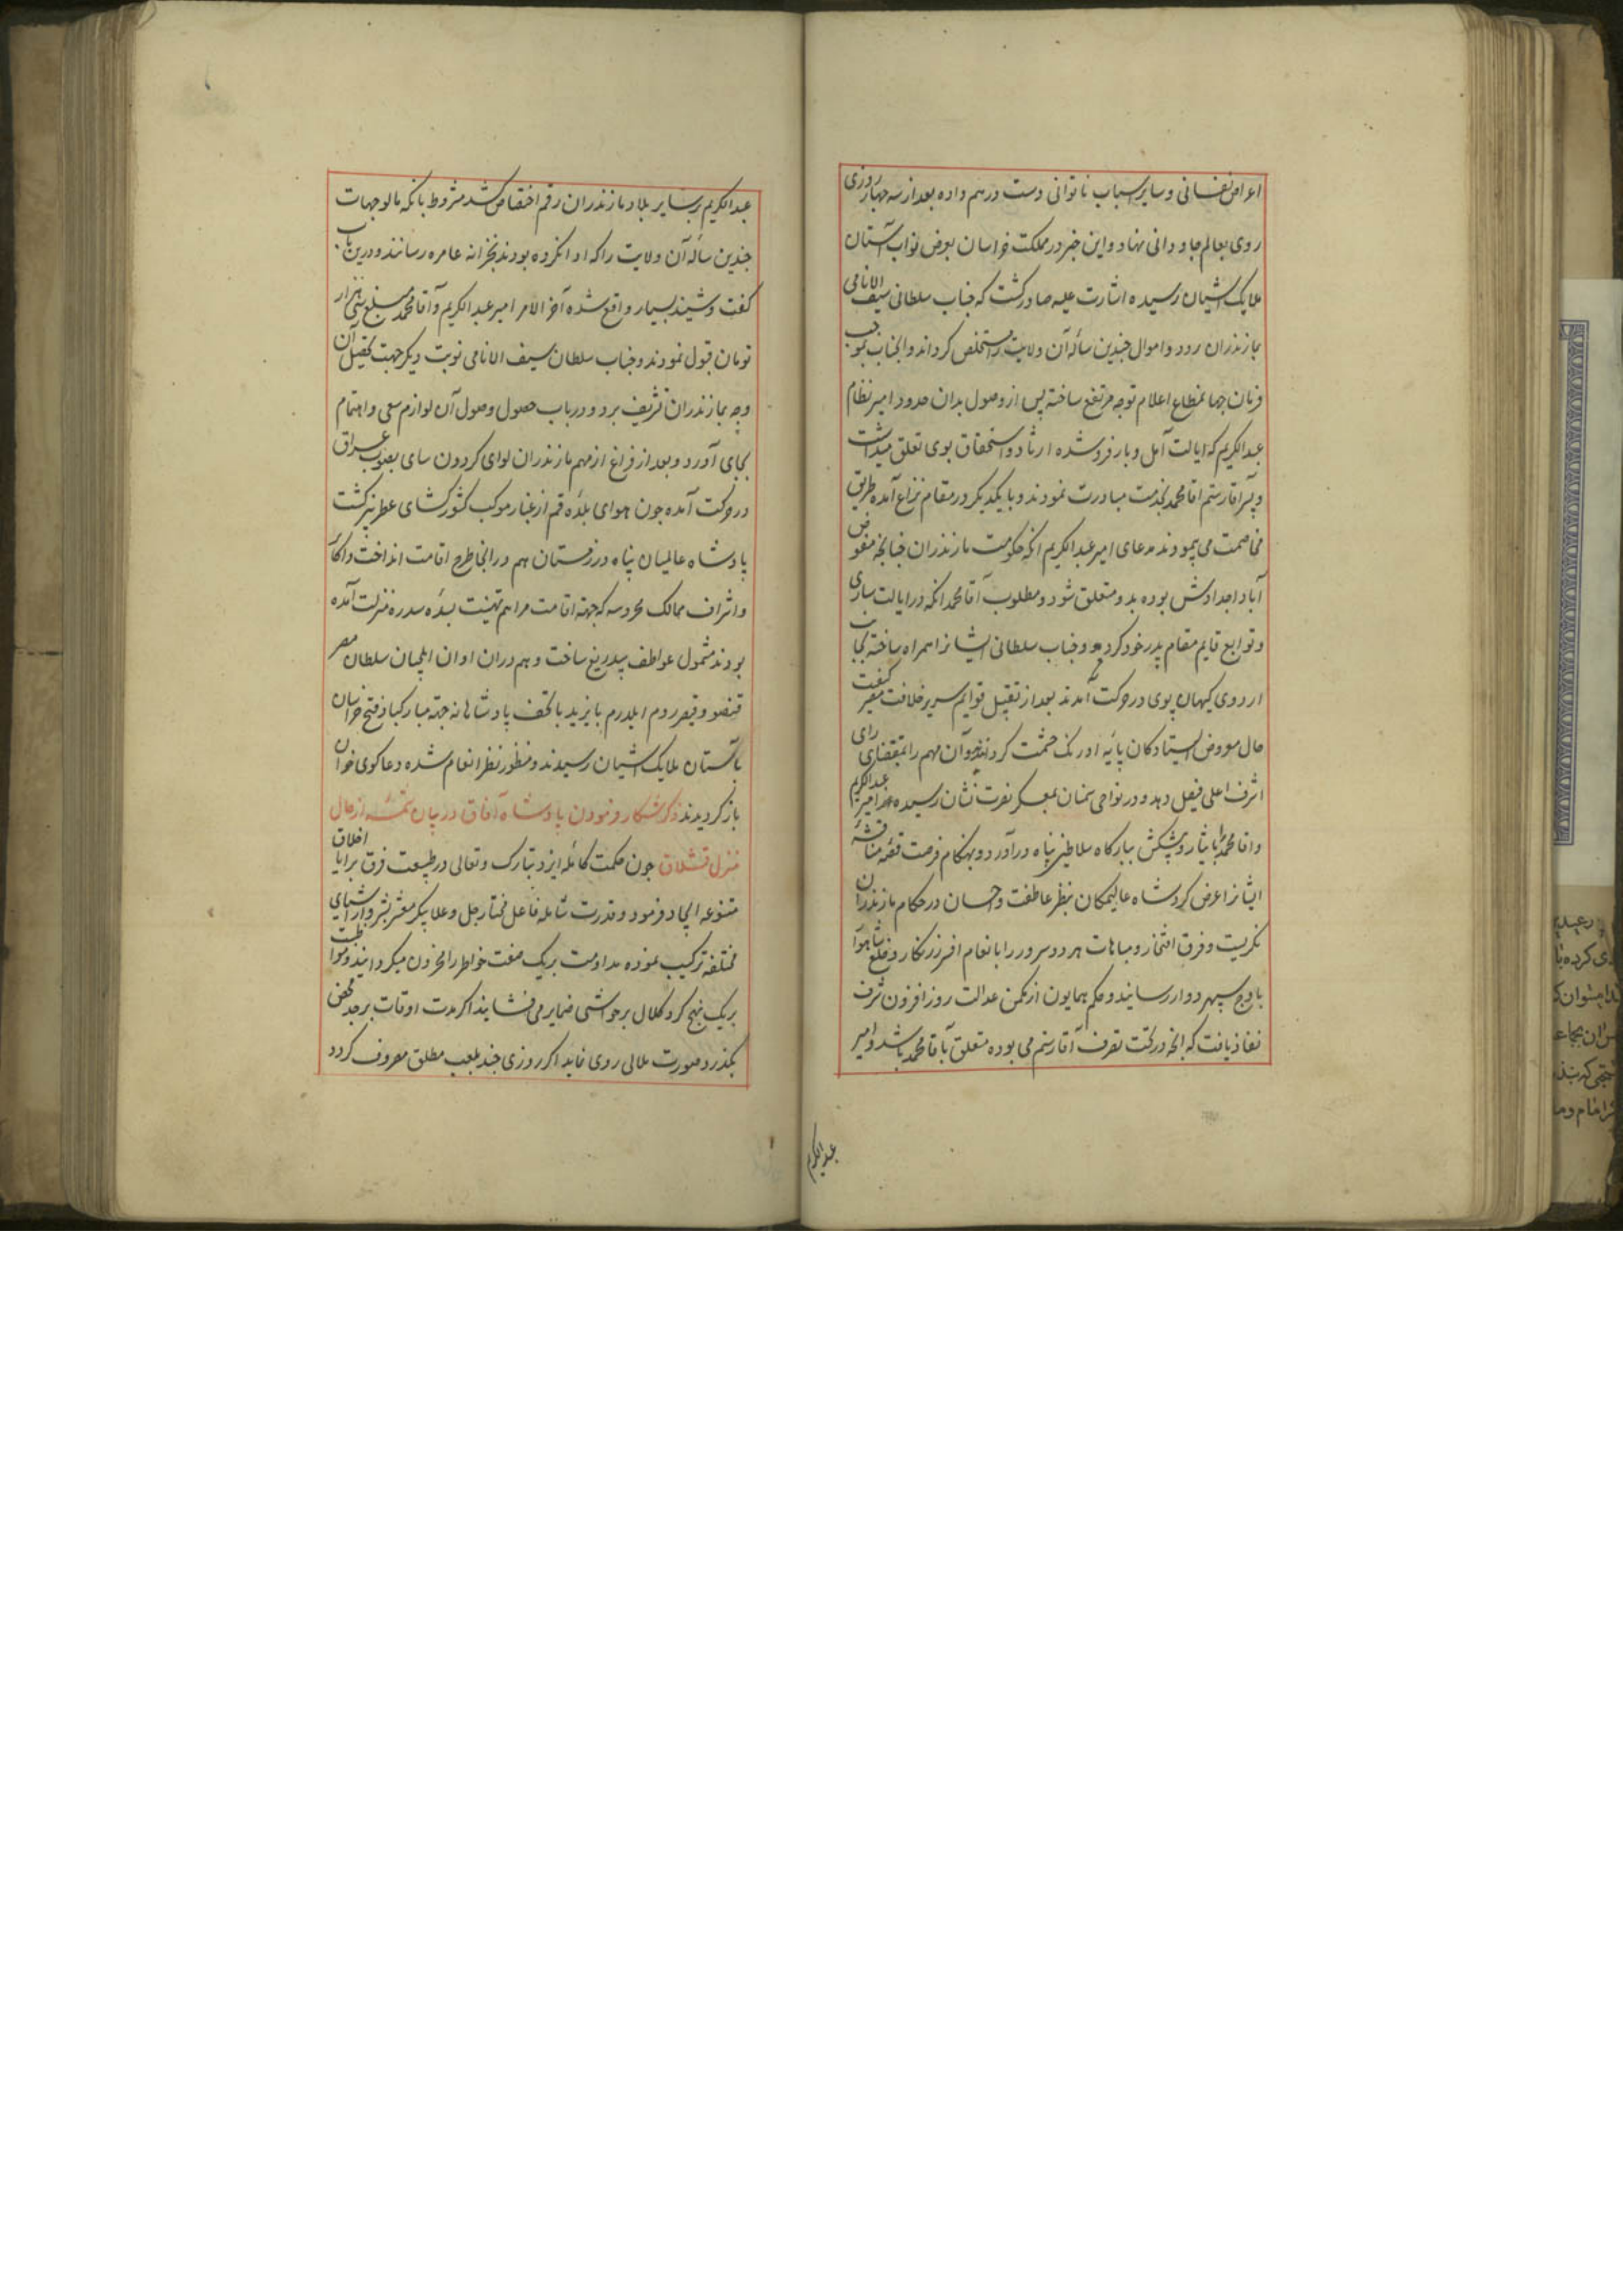 اعراض نفسانی و سایر اسباب ناتوانی دست درهم داده بعد از سه چهار روزی
روی بعالم جاودانی نهاد و این خبر در مملکت خراسان بعرض نواب آستان
ملایک اشیان رسیده اشارت علیه صادر کشت که جناب سلطانی سیف الانامی
بمازندران رود و اموال چندین ساله آن ولایت را مستخلص کرداند و انجناب بموجب
فرمان جهانمطاع اعلام توجه مرتفع ساخته پس از وصول بدان حدود امیر نظام
عبدالکریم که ایالت آمل و بارفروشده ارثا و استحقاق بوی تعلق میداشت
و پسر اقا رستم اقا محمد بخدمت مبادرت نمودند و با یکدیکر در مقام نزاع آمده طریق
مخاصمت می پیمودند مدعای امیر عبدالکریم انکه حکومت مازندران چنانچه مفوض
آبا و اجدادش بوده بدو متعلق شود و مطلوب آقا محمد انکه در ایالت ساری
و توابع قایم مقام پدر خود کردد و جناب سلطانی ایشانرا همراه ساخته بجانب
اردوی کیهان پوی در حرکت آمدند بعد از تقبیل قوایم سریر خلافت مصیر کیفیت
حال معروض ایستادکان پایه اورنک حشمت کردانید و آن مهم را بمقتضای رای
اشرف اعلی فیصل دهد و در نواحی سمنان بمعسکر نصرت نشان رسیده امیر عبدالکریم
و اقا محمد را با نثار و پیشکش ببارکاه سلاطین پناه درآورد و بهنکام فرصت قضیه مناقشه
ایشانرا عرض کرد شاه عالیمکان بنظر عاطفت و احسان در حکام مازندران
نکریست و فرق افتخار و مباهات هر دو سرور را بانعام افسر زرنکار و خلع
باوج سپهر دوار رسانید و حکم همایون از مکمن عدالت روز افزون شرف
نفاذ یافت که انچه در تحت تصرف آقا رستم می بوده متعلق بآقا محمد باشد و امیر
عبدالکریم
عبدالکریم بر سایر بلاد مازندران رقم اختصاص کشد مشروط بانکه مالوجهات
چندین ساله آن ولایت را که ادا نکرده بودند بخزانه عامره رسانند و درین باب
کفت و شنید بسیار واقع شده آخر الامر امیر عبدالکریم و آقا محمد مبلغ سی هزار
تومان قبول نمودند و جناب سلطان سیف الانامی نوبت دیکر جهت تحصیل آن
وجه بمازندران تشریف برد و در باب حصول وصول آن لوازم سعی و اهتمام
بجای آورد و بعد از فراغ از مهم مازندران لوای کردون سای بصوب عراق
در حرکت آمده چون هوای بلده قم از غبار موکب کشورکشای عطربیز کشت
پادشاه عالمیان پناه در زمستان هم در انجا طرح اقامت انداخت و اکابر
و اشراف ممالک محروسه که جهة اقامت مراسم تهنیت بسده سدره منزلت آمده
بودند مشمول عواطف بیدریغ ساخت و هم دران اوان ایلچیان سلطان مصر
قنصو و قیصر روم ایلدرم بایزید با تحف پادشاهانه جهة مبارکباد فتح خراسان
بآستان ملایک اشیان رسیدند و منظور نظر انعام شده دعاکوی خوان
بازکردیدند ذکر شکار فرمودن پادشاه آفاق در بیان تتمه از حال
منزل قشلاق چون حکمت کامله ایزد تبارک و تعالی در طبیعت فرق برایا اخلاق
متنوعه ایجاد فرمود و قدرت شامله فاعل مختار جل و علا پیکر معشر بشر را از اشیای
مختلفه ترکیب نموده مداومت بریک صفت خواطر را محزون میکرداند و مواظبت
بریک نهج کرد کلال بر حواشی ضمایر می فشاند اکر مدت اوقات بر جد محض
بکذرد صورت ملالی روی نماید اکر روزی چند بلعب مطلق مصروف کردد